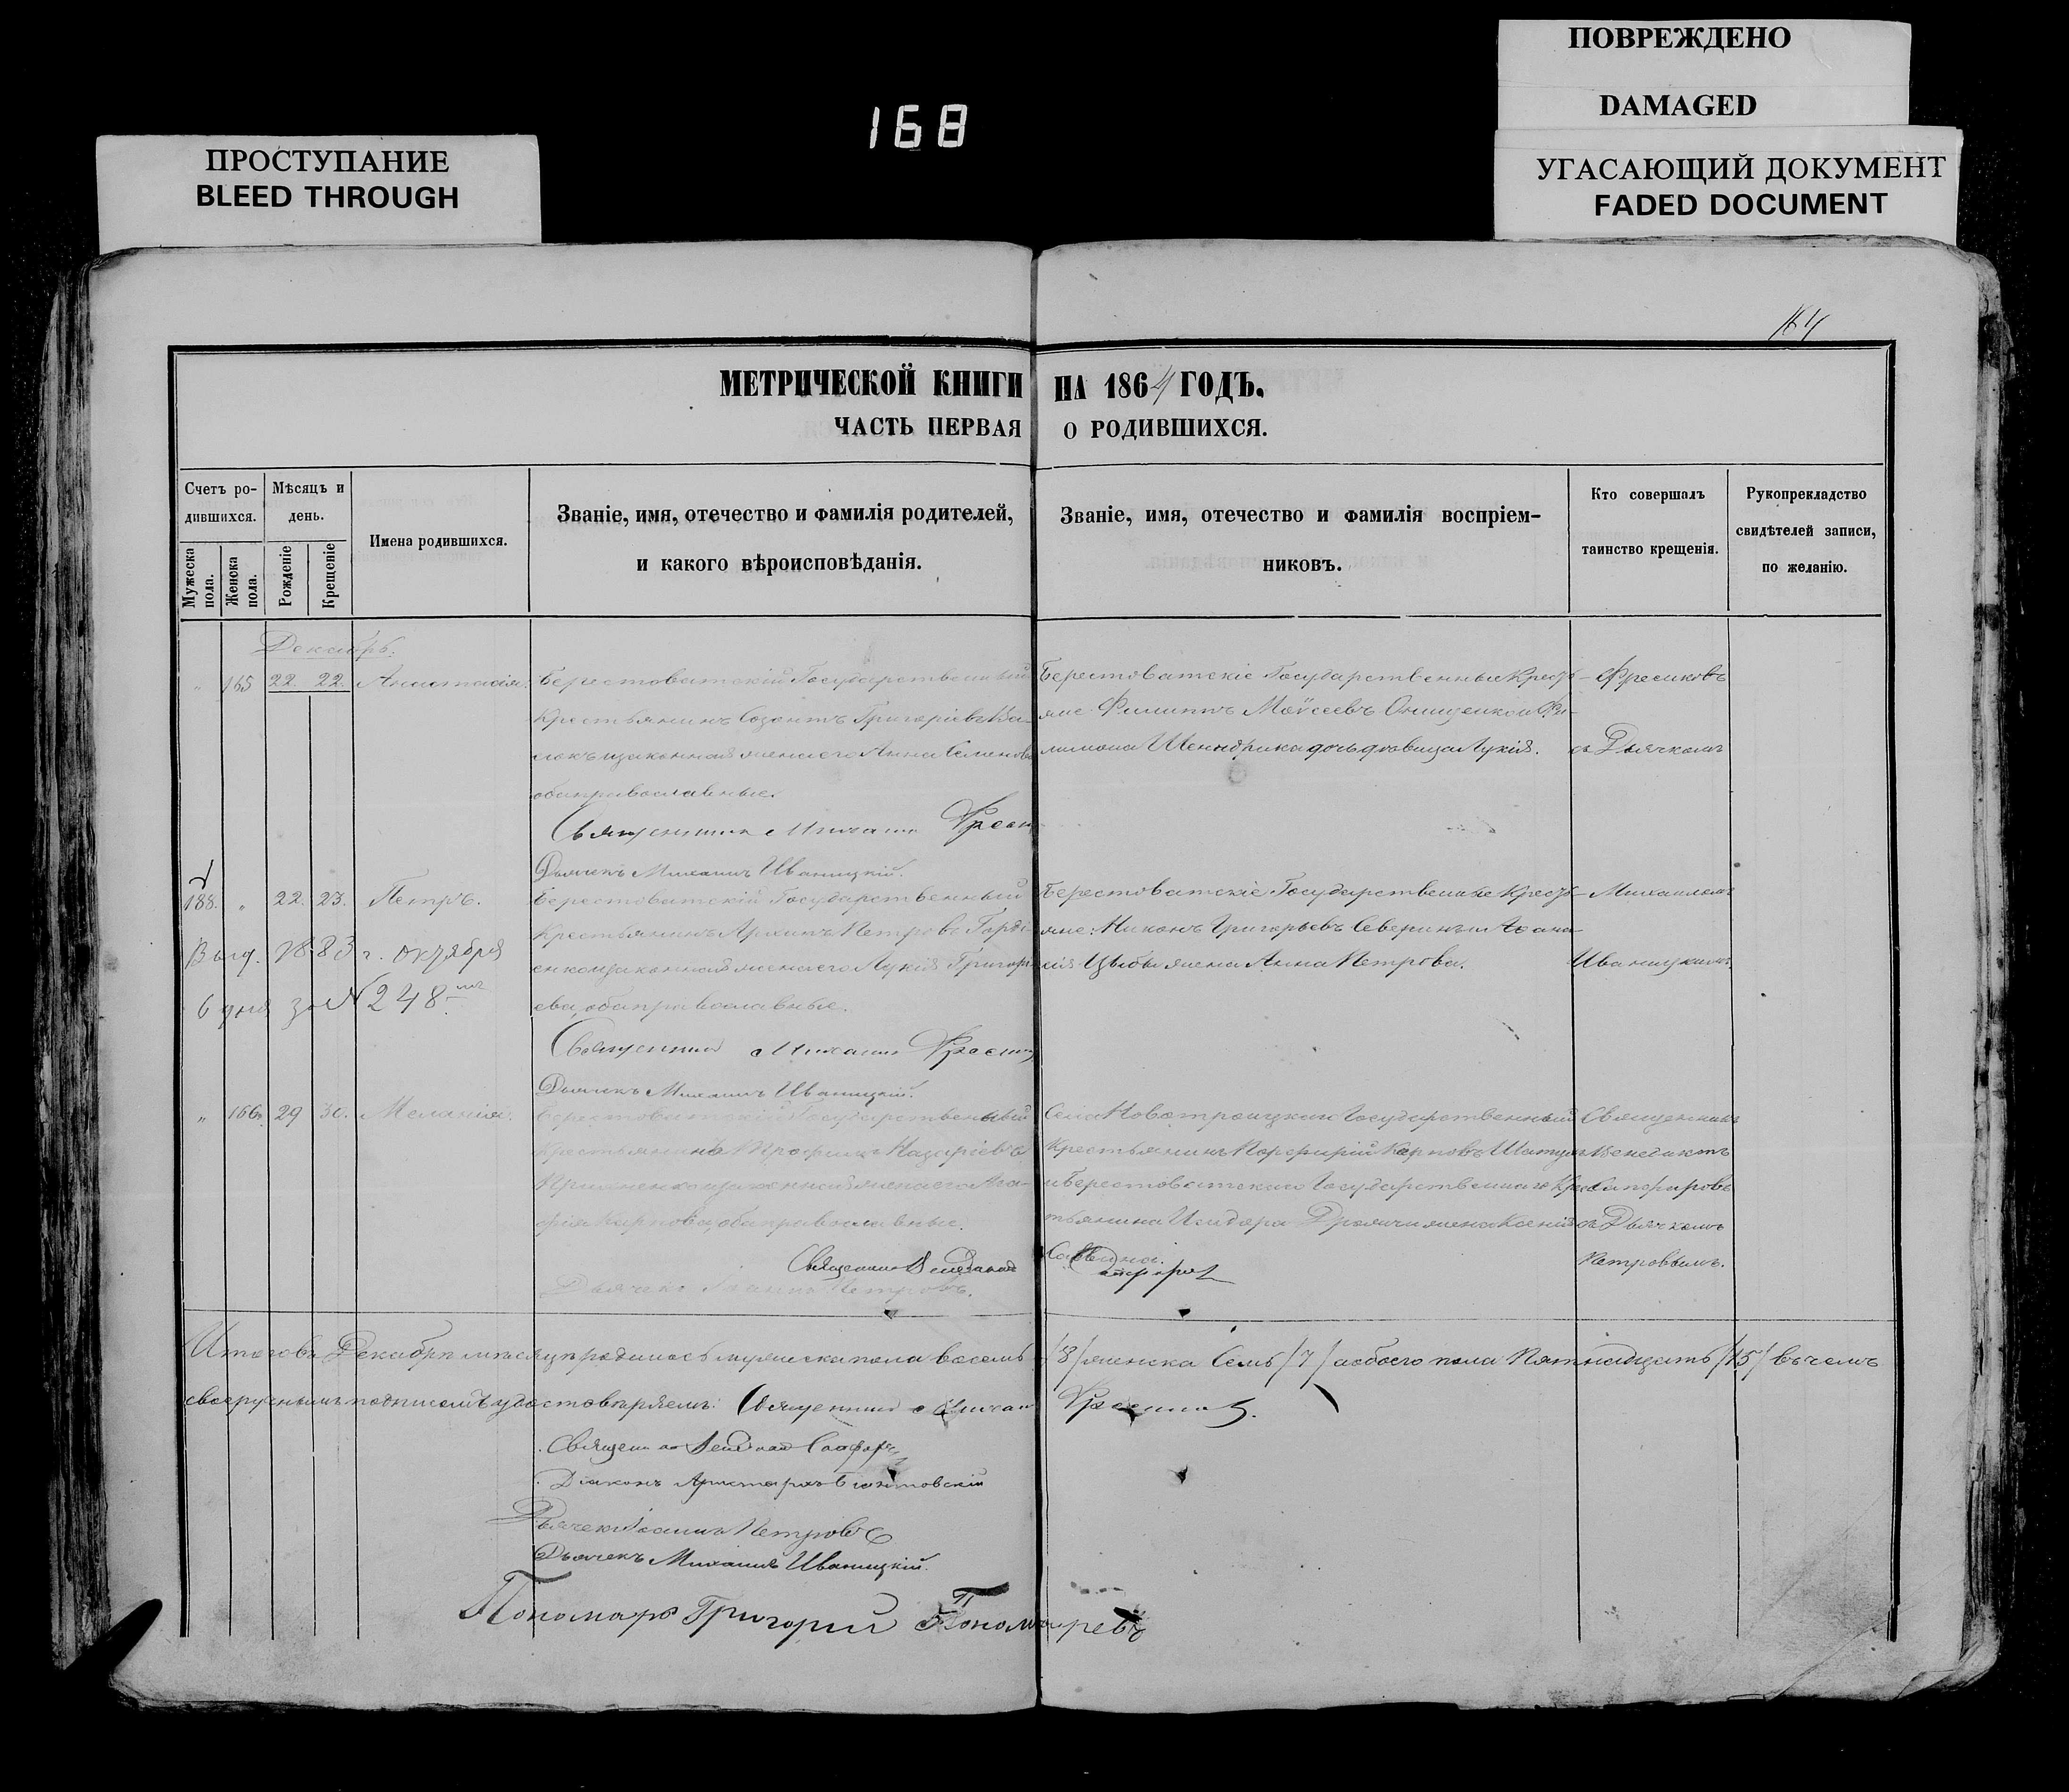 ПОВРЕЖДЕНО
DAMAGED
168
ПРОСТУПАНИЕ
BLEED THROUGH
УГАСАЮЩИЙ ДОКУМЕНТ
FADED DOCUMENT
164
МЕТРИЧЕСКОЙ КНИГИ НА 1864 ГОДЪ.
ЧАСТЬ ПЕРВАЯ О РОДИВШИХСЯ.
Счетъ ро-
дившихся.
Мужеска пола.
Женска пола.
Мѣсяцъ и
день.
Рожденіе
Крещеніе
Имена родившихся.
Званіе, имя, отечество и фамилія родителей,
и какого вѣроисповѣданія.
Званіе, имя, отечество и фамилія воспріем-
никовъ.
Кто совершалъ
таинство крещенія.
Рукоприкладство
свидѣтелей записи,
по желанію.
Декабрь.
" 165 22. 22. Анастасія.
Берестоватскій Государственный
Крестьянинъ Григоріевъ
законная жена его Анна Семенова
оба православные.
Священникъ Михаилъ
Дьячекъ Михаилъ Иваницкій.
Берестоватскіе Государственные Кресть-
яне Филиппъ Моѵсеевъ Онищенко и Фи-
лимона дочь девица Лукія.
съ Дьячкомъ
188. " 22. 23. Петръ.
Выд. 1883 г. октября
6 дня за № 248
Берестоватскій Государственный
Крестьянинъ Архипъ Петровъ Горде-
енко и законная жена его Лукія Григорь-
ева, оба православные.
Священникъ Михаилъ
Дьячекъ Михаилъ Иваницкій.
Берестоватскіе Государственные Кресть-
яне: Никонъ Григорьевъ Северинъ и Афана-
сія Цыбы жена Анна Петрова.
Михаиломъ
Иваницкимъ
" 166. 29 30. Меланія.
Берестоватскій Государственный
Крестьянинъ Трофимъ Назаріевъ
и законная жена его Ага-
фія Карпова, оба православные.
Священникъ
Дьячекъ Іоаннъ Петровъ.
Села Новотроицкаго Государственный
Крестьянинъ Порфирій Карповъ
и Берестоватскаго Государственнаго Крес-
тьянина Исидора жена Ксенія
Саввина.
Священникъ
Венедиктъ
съ Дьячкомъ
Петровымъ.
Итого въ Декабрѣ мѣсяцѣ родилось мужеска пола восемь /8/ женска семь /7/ а обоего пола пятнадцать /15/ въ чемъ
своеручнымъ подписомъ удостовѣряемъ: Священникъ Михаилъ
Священникъ
Діаконъ Аристархъ
Дьячекъ Іоаннъ Петровъ
Дьячекъ Михаилъ Иваницкій.
Пономарь Григорій Пономаревъ